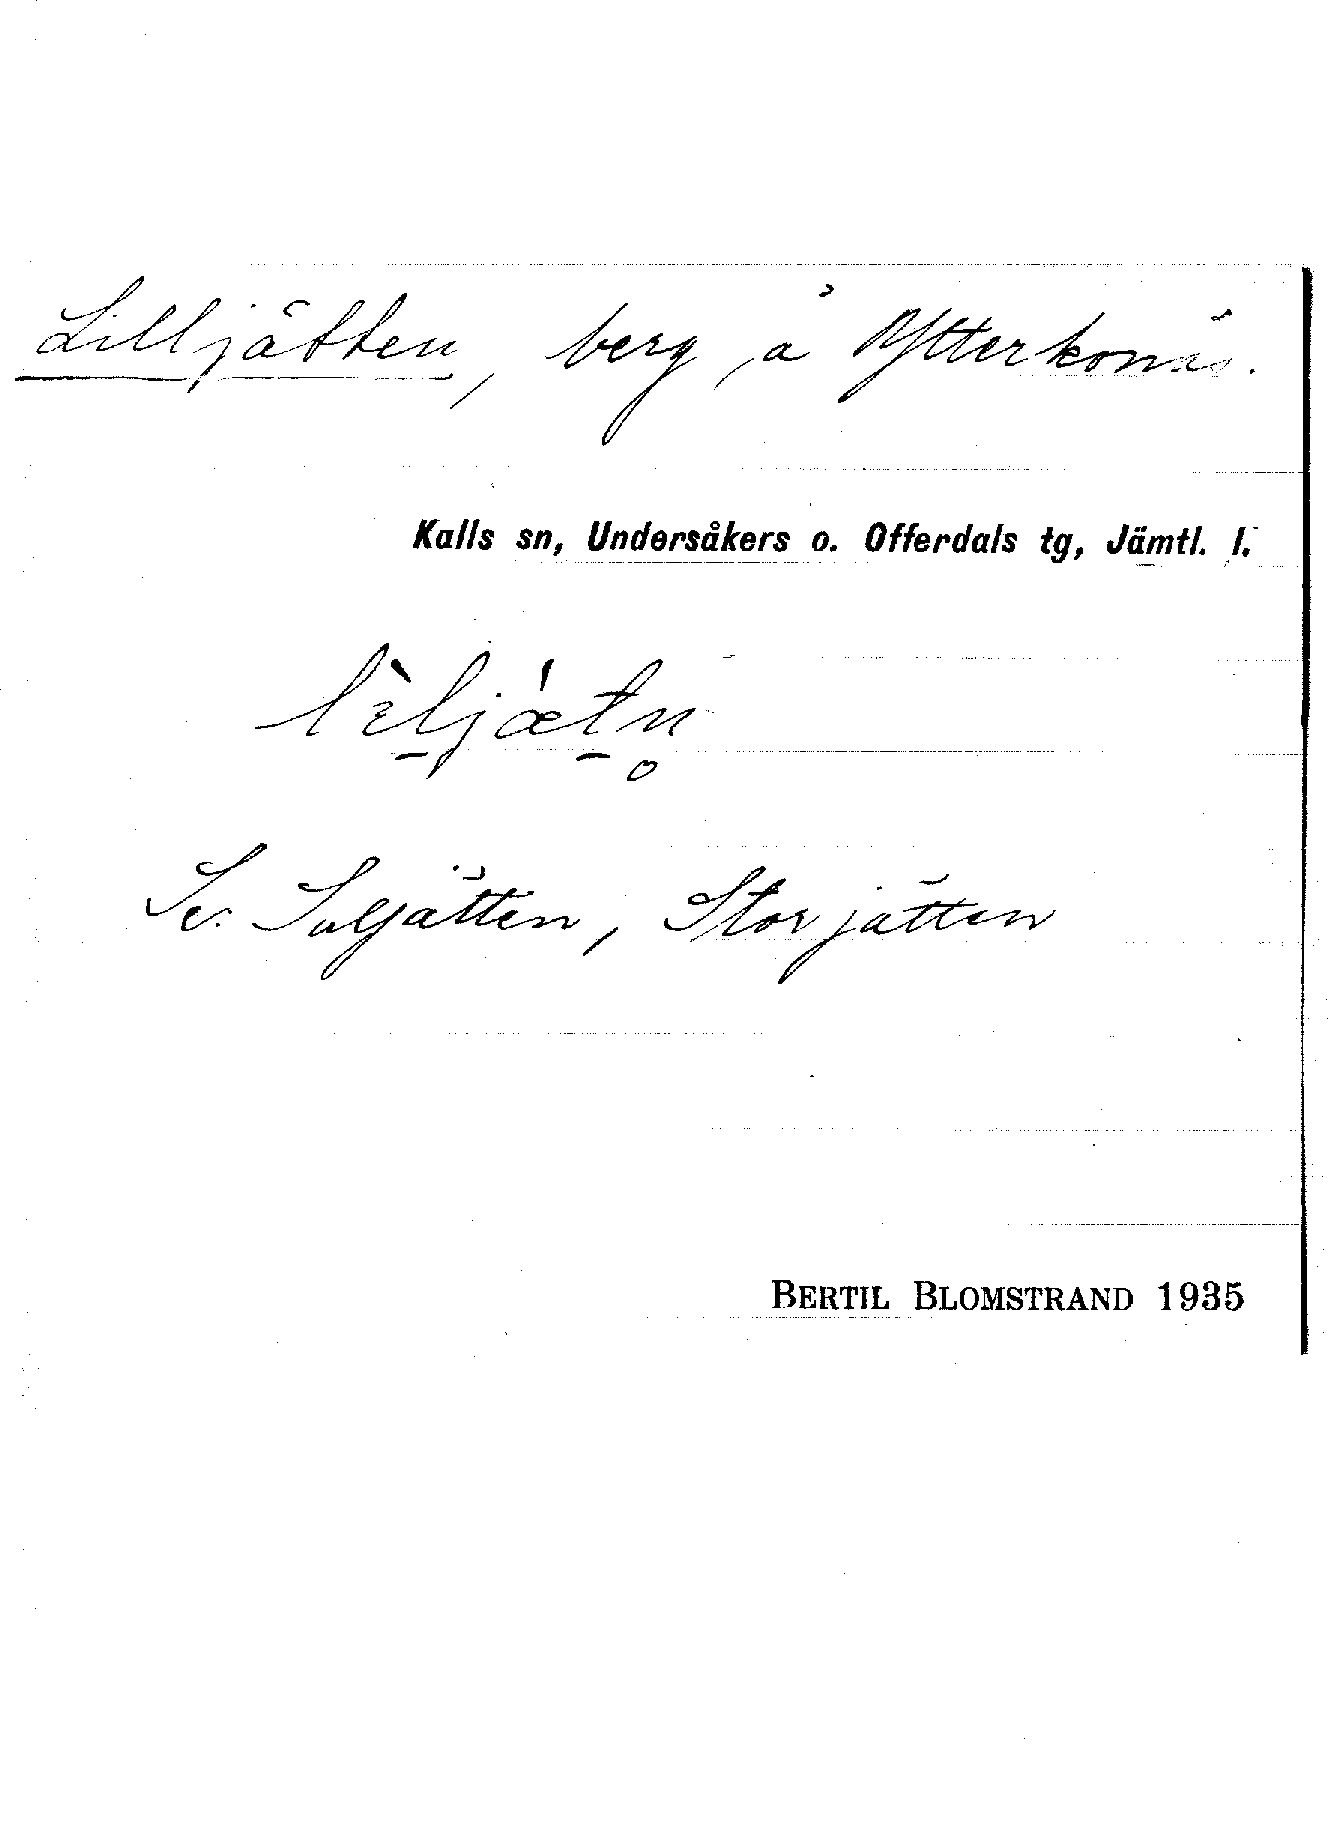 Lilljätten, berg å Ytterkonäs.
Kalls sn, Undersåkers o. Offerdals tg, Jämtl. l.
Se. Suljätten, Storjätten
BERTIL BLOMSTRAND 1935